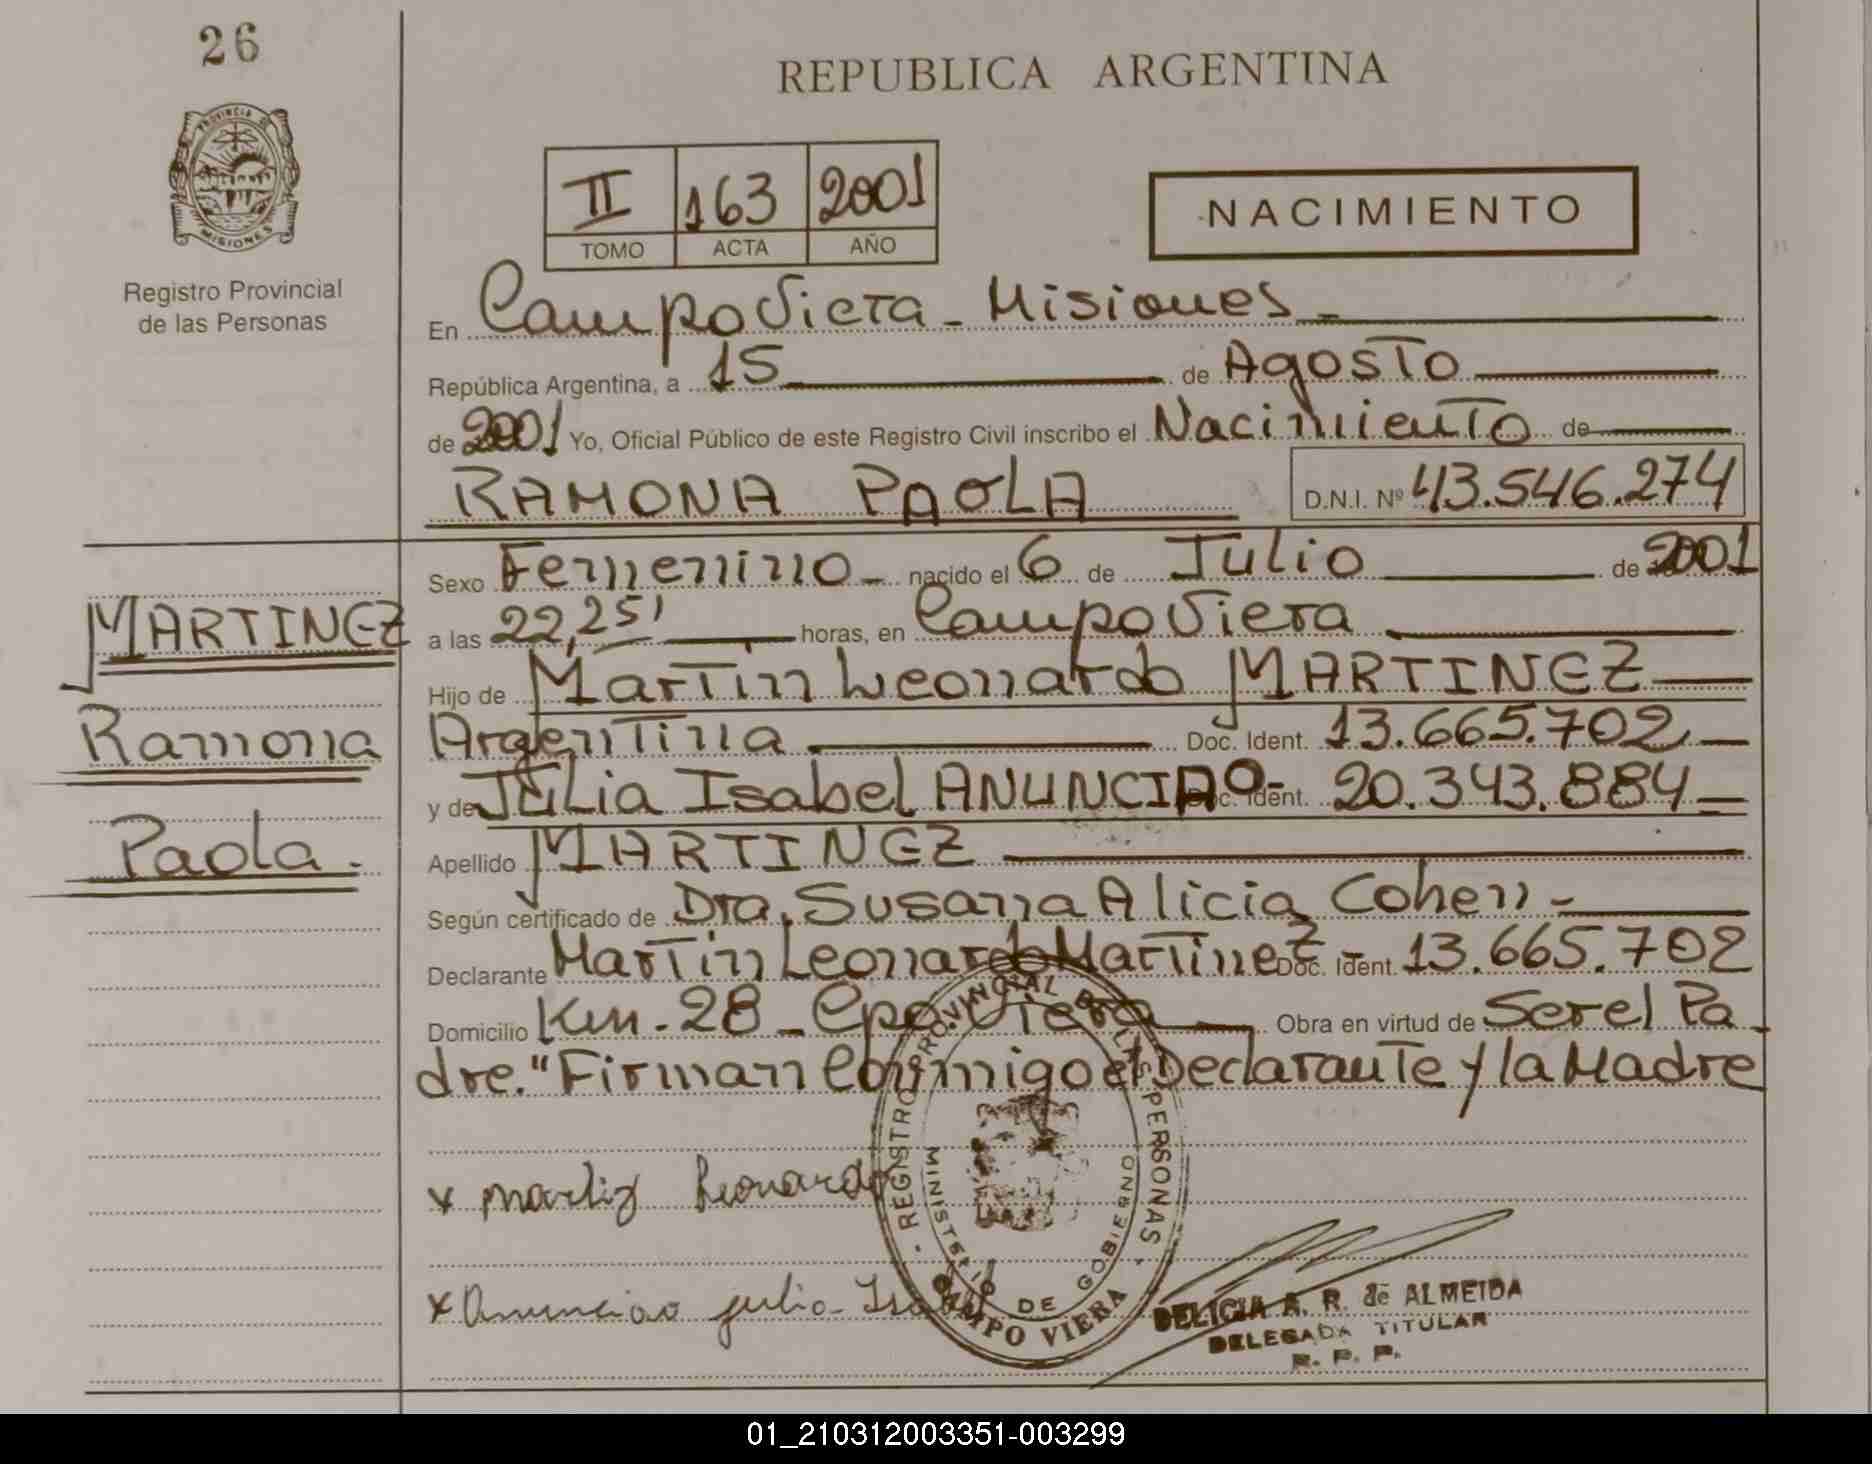 26
REPUBLICA ARGENTINA
PROVINCIA DE
MISIONES
Registro Provincial
de las Personas
II 163 2001
TOMO ACTA AÑO
NACIMIENTO
En Campo Viera - Misiones -
República Argentina, a 15 de Agosto
de 2001 Yo, Oficial Público de este Registro Civil inscribo el Nacimiento de
RAMONA PAOLA D.N.I. Nº 43.546.274
MARTINEZ
Ramona
Paola.
Sexo Femenino - nacido el 6 de Julio de 2001
a las 22,25' horas, en Campo Viera
Hijo de Martin Leonardo MARTINEZ
Argentina Doc. Ident. 13.665.702
y de Julia Isabel ANUNCIAO- Doc. Ident. 20.343.884
Apellido MARTINEZ
Según certificado de Dra. Susana Alicia Cohen -
Declarante Martin Leonardo Martinez - Doc. Ident. 13.665.702
Domicilio Km. 28 - Cpo Viera Obra en virtud de Ser el Pa
dre." Firman Conmigo el Declarante y la Madre
x Leonardo
x Anunciao julia Isabel
REGISTRO PROVINCIAL DE LAS PERSONAS
MINISTERIO DE GOBIERNO
CAMPO VIERA
DELICIA A. R. de ALMEIDA
DELEGADA TITULAR
R. P. P.
01_210312003351-003299